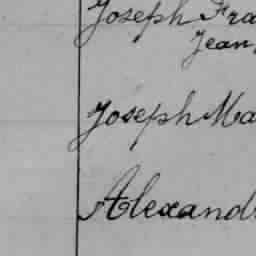 Joseph Fra
Jean
Joseph Ma
Alexand